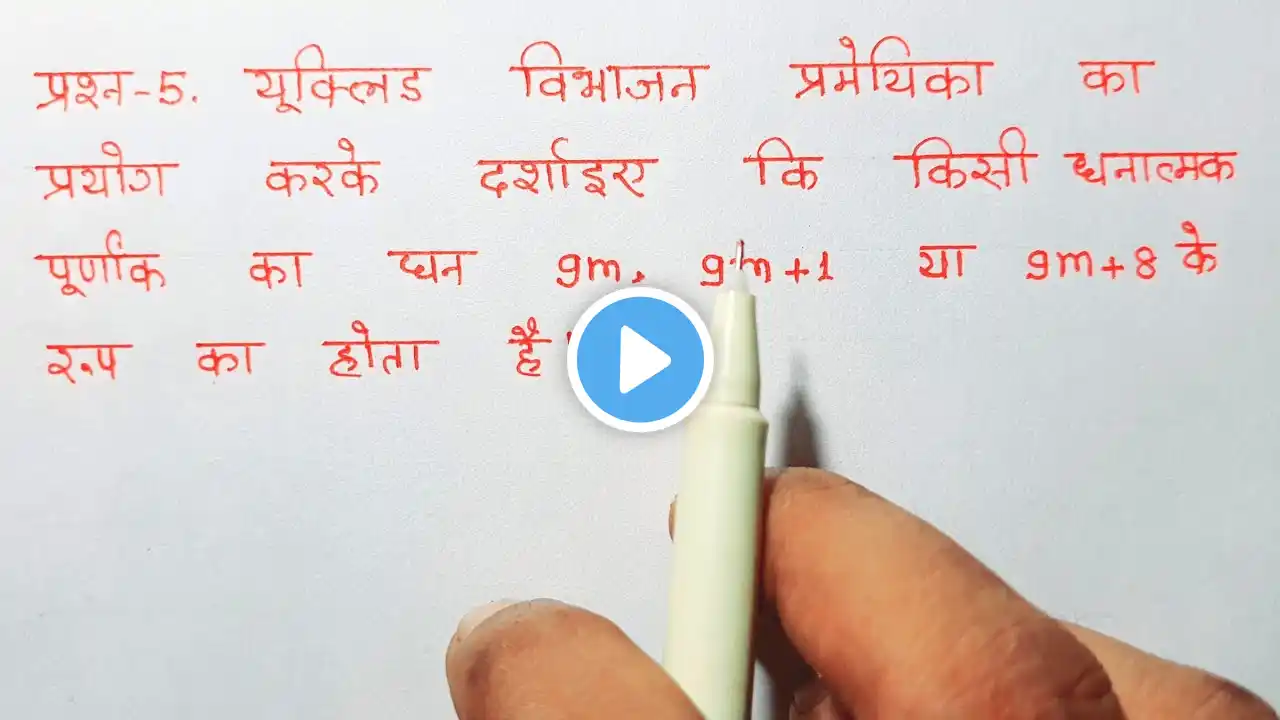 प्रश्न-5. यूक्लिड विभाजन प्रमेयिका का
प्रयोग करके दर्शाइए कि किसी धनात्मक
पूर्णांक का घन 9m, 9m+1 या 9m+8 के
रूप का होता है।